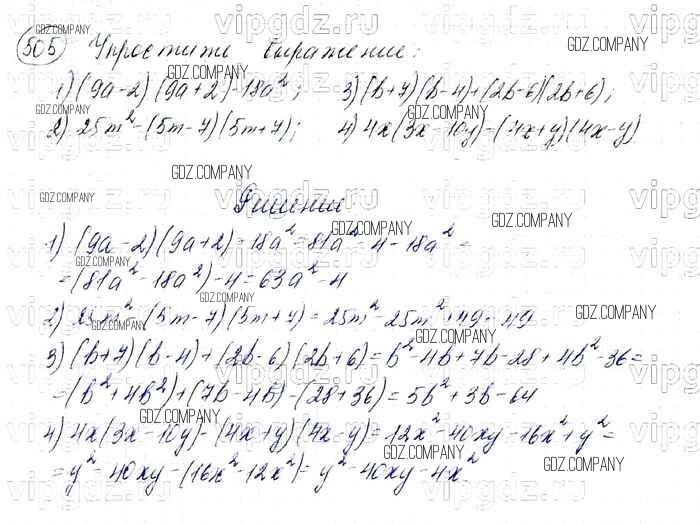 505 Упростите выражение:
1) (9a-2)(9a+2)-18a²; 3) (b+7)(b-4)+(2b-6)(2b+6);
2) 25m²-(5m-7)(5m+7); 4) 4x(3x-10y)-(4x+y)(4x-y)
Решение
1) (9a-2)(9a+2)-18a²=81a²-4-18a²=
=(81a²-18a²)-4=63a²-4
2) 25m²-(5m-7)(5m+7)=25m²-25m²+49=49
3) (b+7)(b-4)+(2b-6)(2b+6)=b²-4b+7b-28+4b²-36=
=(b²+4b²)+(7b-4b)-(28+36)=5b²+3b-64
4) 4x(3x-10y)-(4x+y)(4x-y)=12x²-40xy-16x²+y²=
=y²-40xy-(16x²-12x²)=y²-40xy-4x²
GDZ.COMPANY
vipgdz.ru